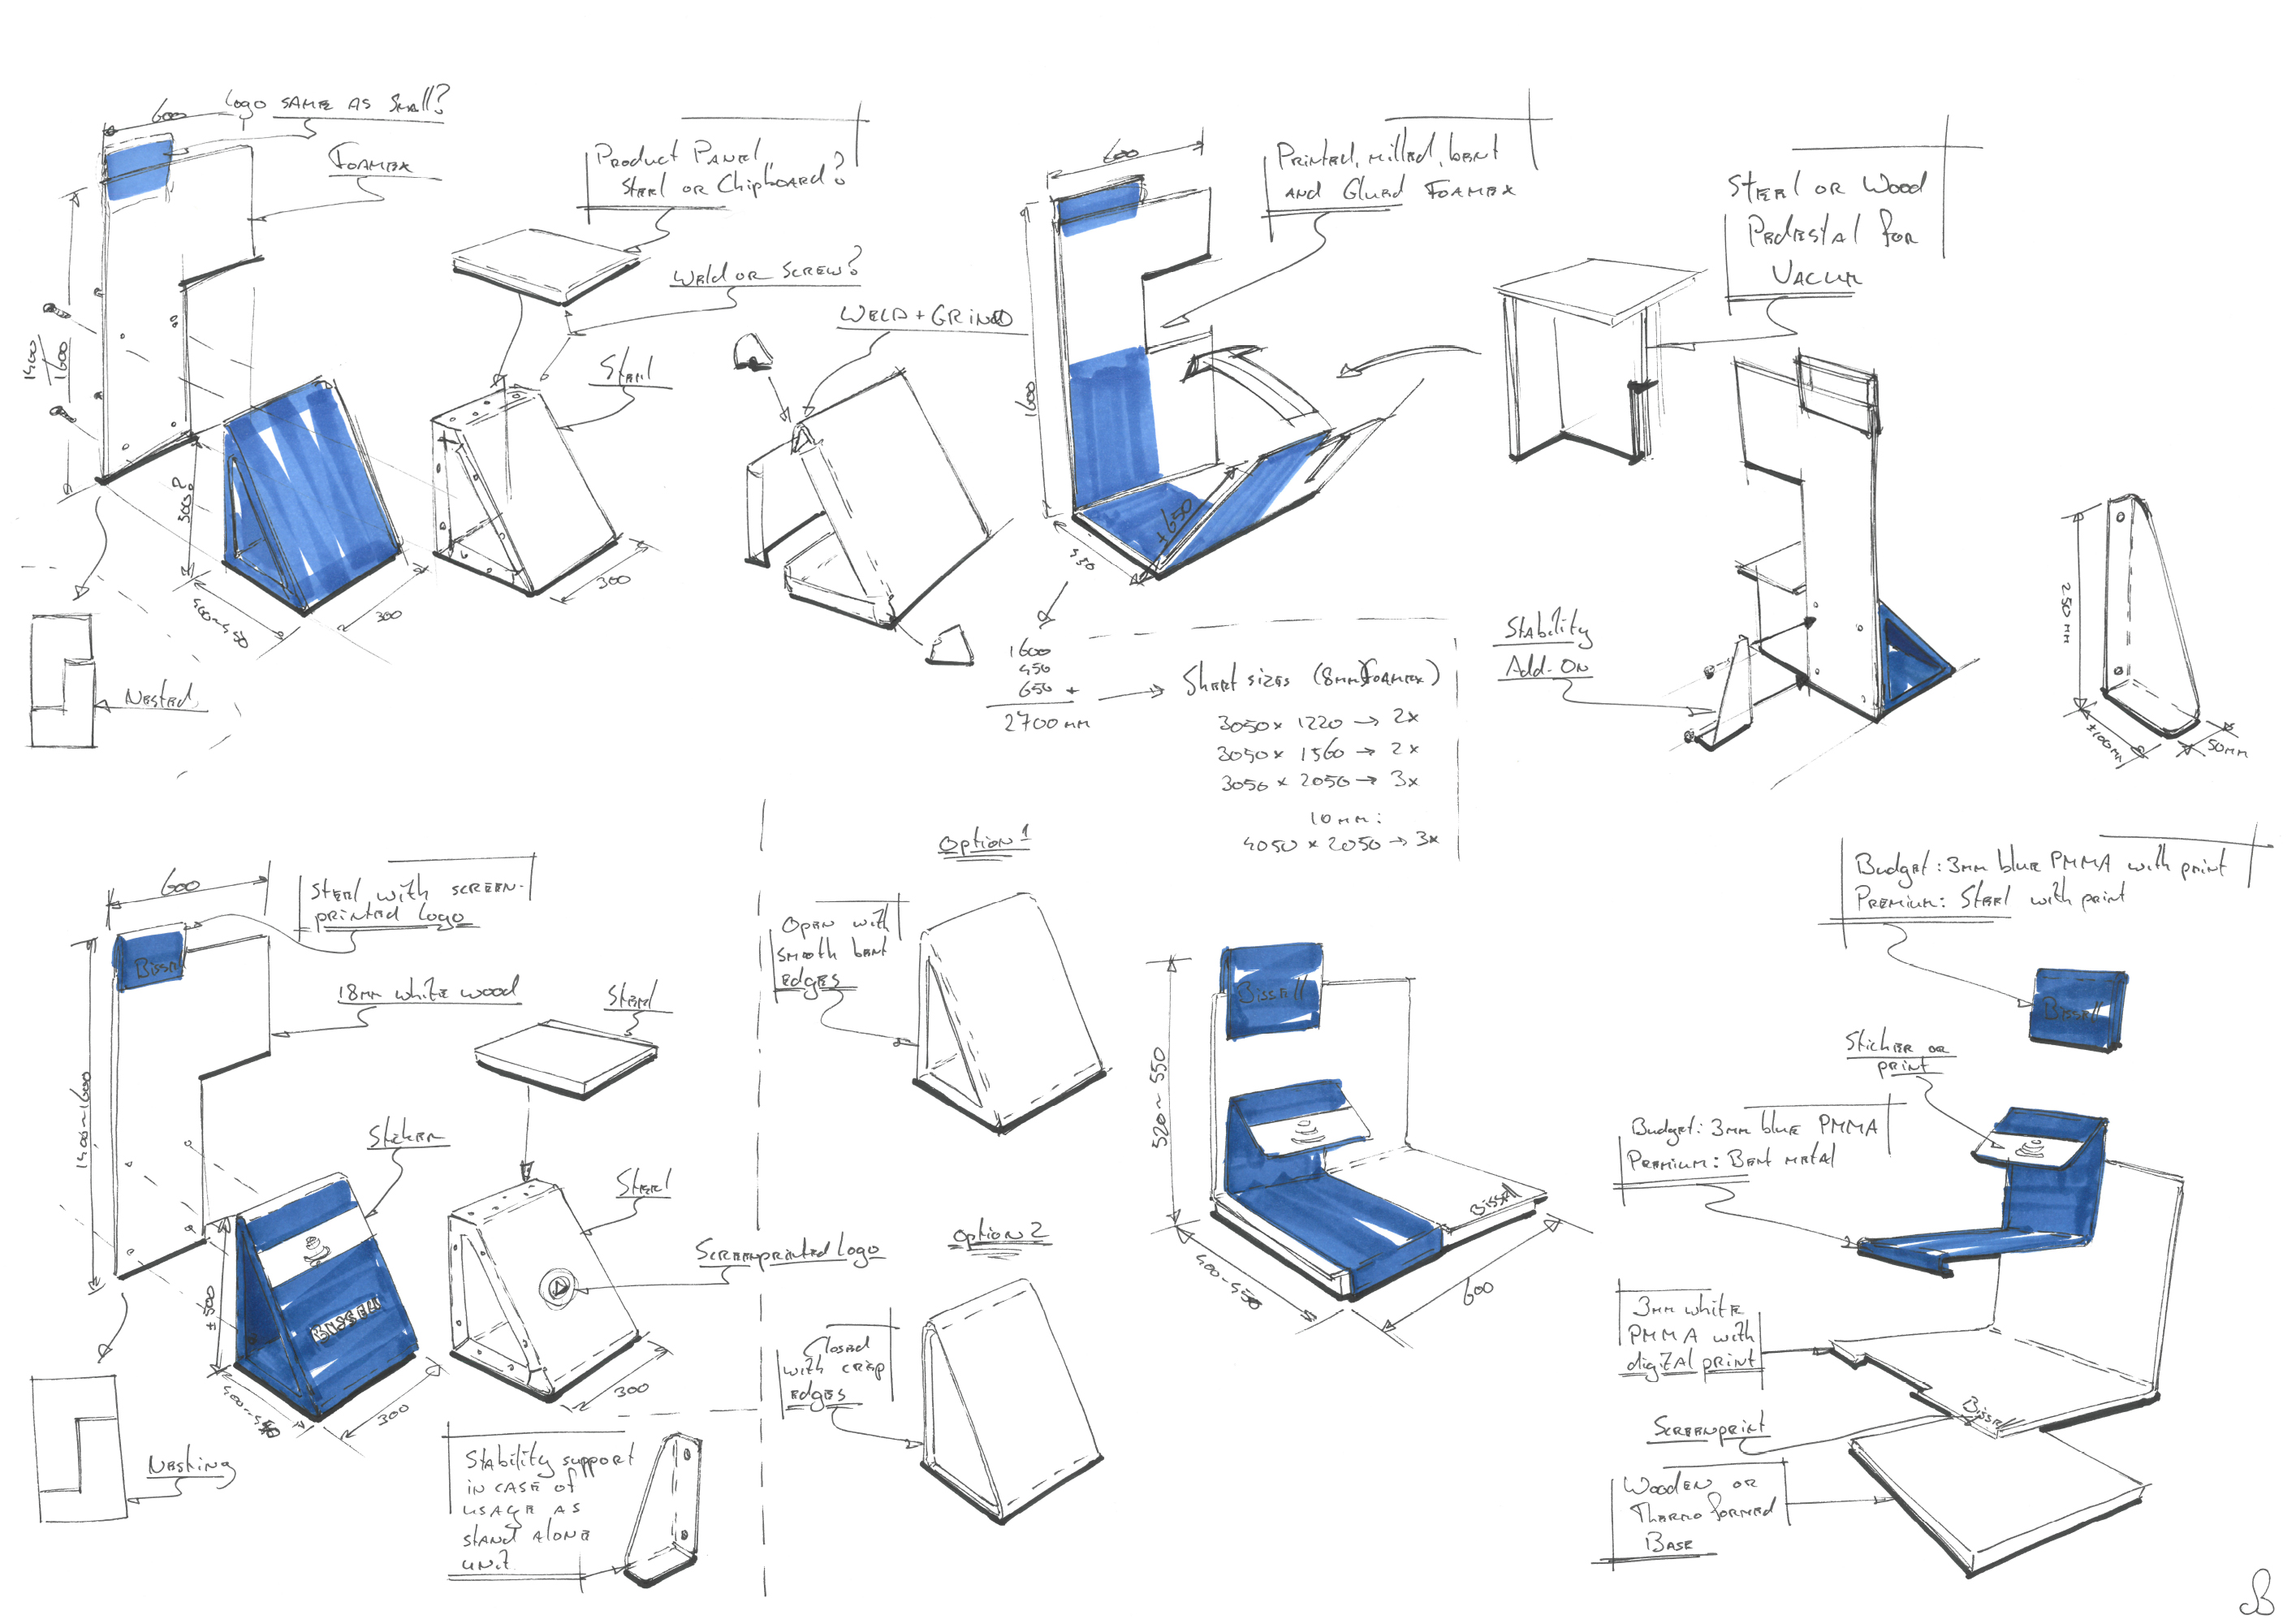 600
Logo same as small?
Foamex
1400
1600
500?
400~450
300
Nested
Product Panel
Steel or Chipboard?
Weld or Screw?
Steel
300
Weld + Grind
600
1600
Printed, milled, bent
and Glued Foamex
450
±650
1600
450
650 +
2700mm
Sheet sizes (8mm Foamex)
3050 x 1220 → 2x
3050 x 1560 → 2x
3050 x 2050 → 3x
10mm:
4050 x 2050 → 3x
Steel or Wood
Pedestal for
Vacum
Stability
Add-On
250mm
±100mm
50mm
600
Steel with screen-
printed logo
Bissell
18mm white wood
1400~1600
Sticker
Bissell
±500
400~450
300
Nesting
Steel
Steel
Screenprinted logo
300
Stability support
in case of
usage as
stand alone
unit
Option 1
Open with
smooth bent
edges
Option 2
Closed
with crisp
edges
520~550
Bissell
Bissell
400~450
600
Budget: 3mm blue PMMA with print
Premium: Steel with print
Bissell
Sticker or
print
Budget: 3mm blue PMMA
Premium: Bent metal
3mm white
PMMA with
digital print
Bissell
Screenprint
Wooden or
Thermoformed
Base